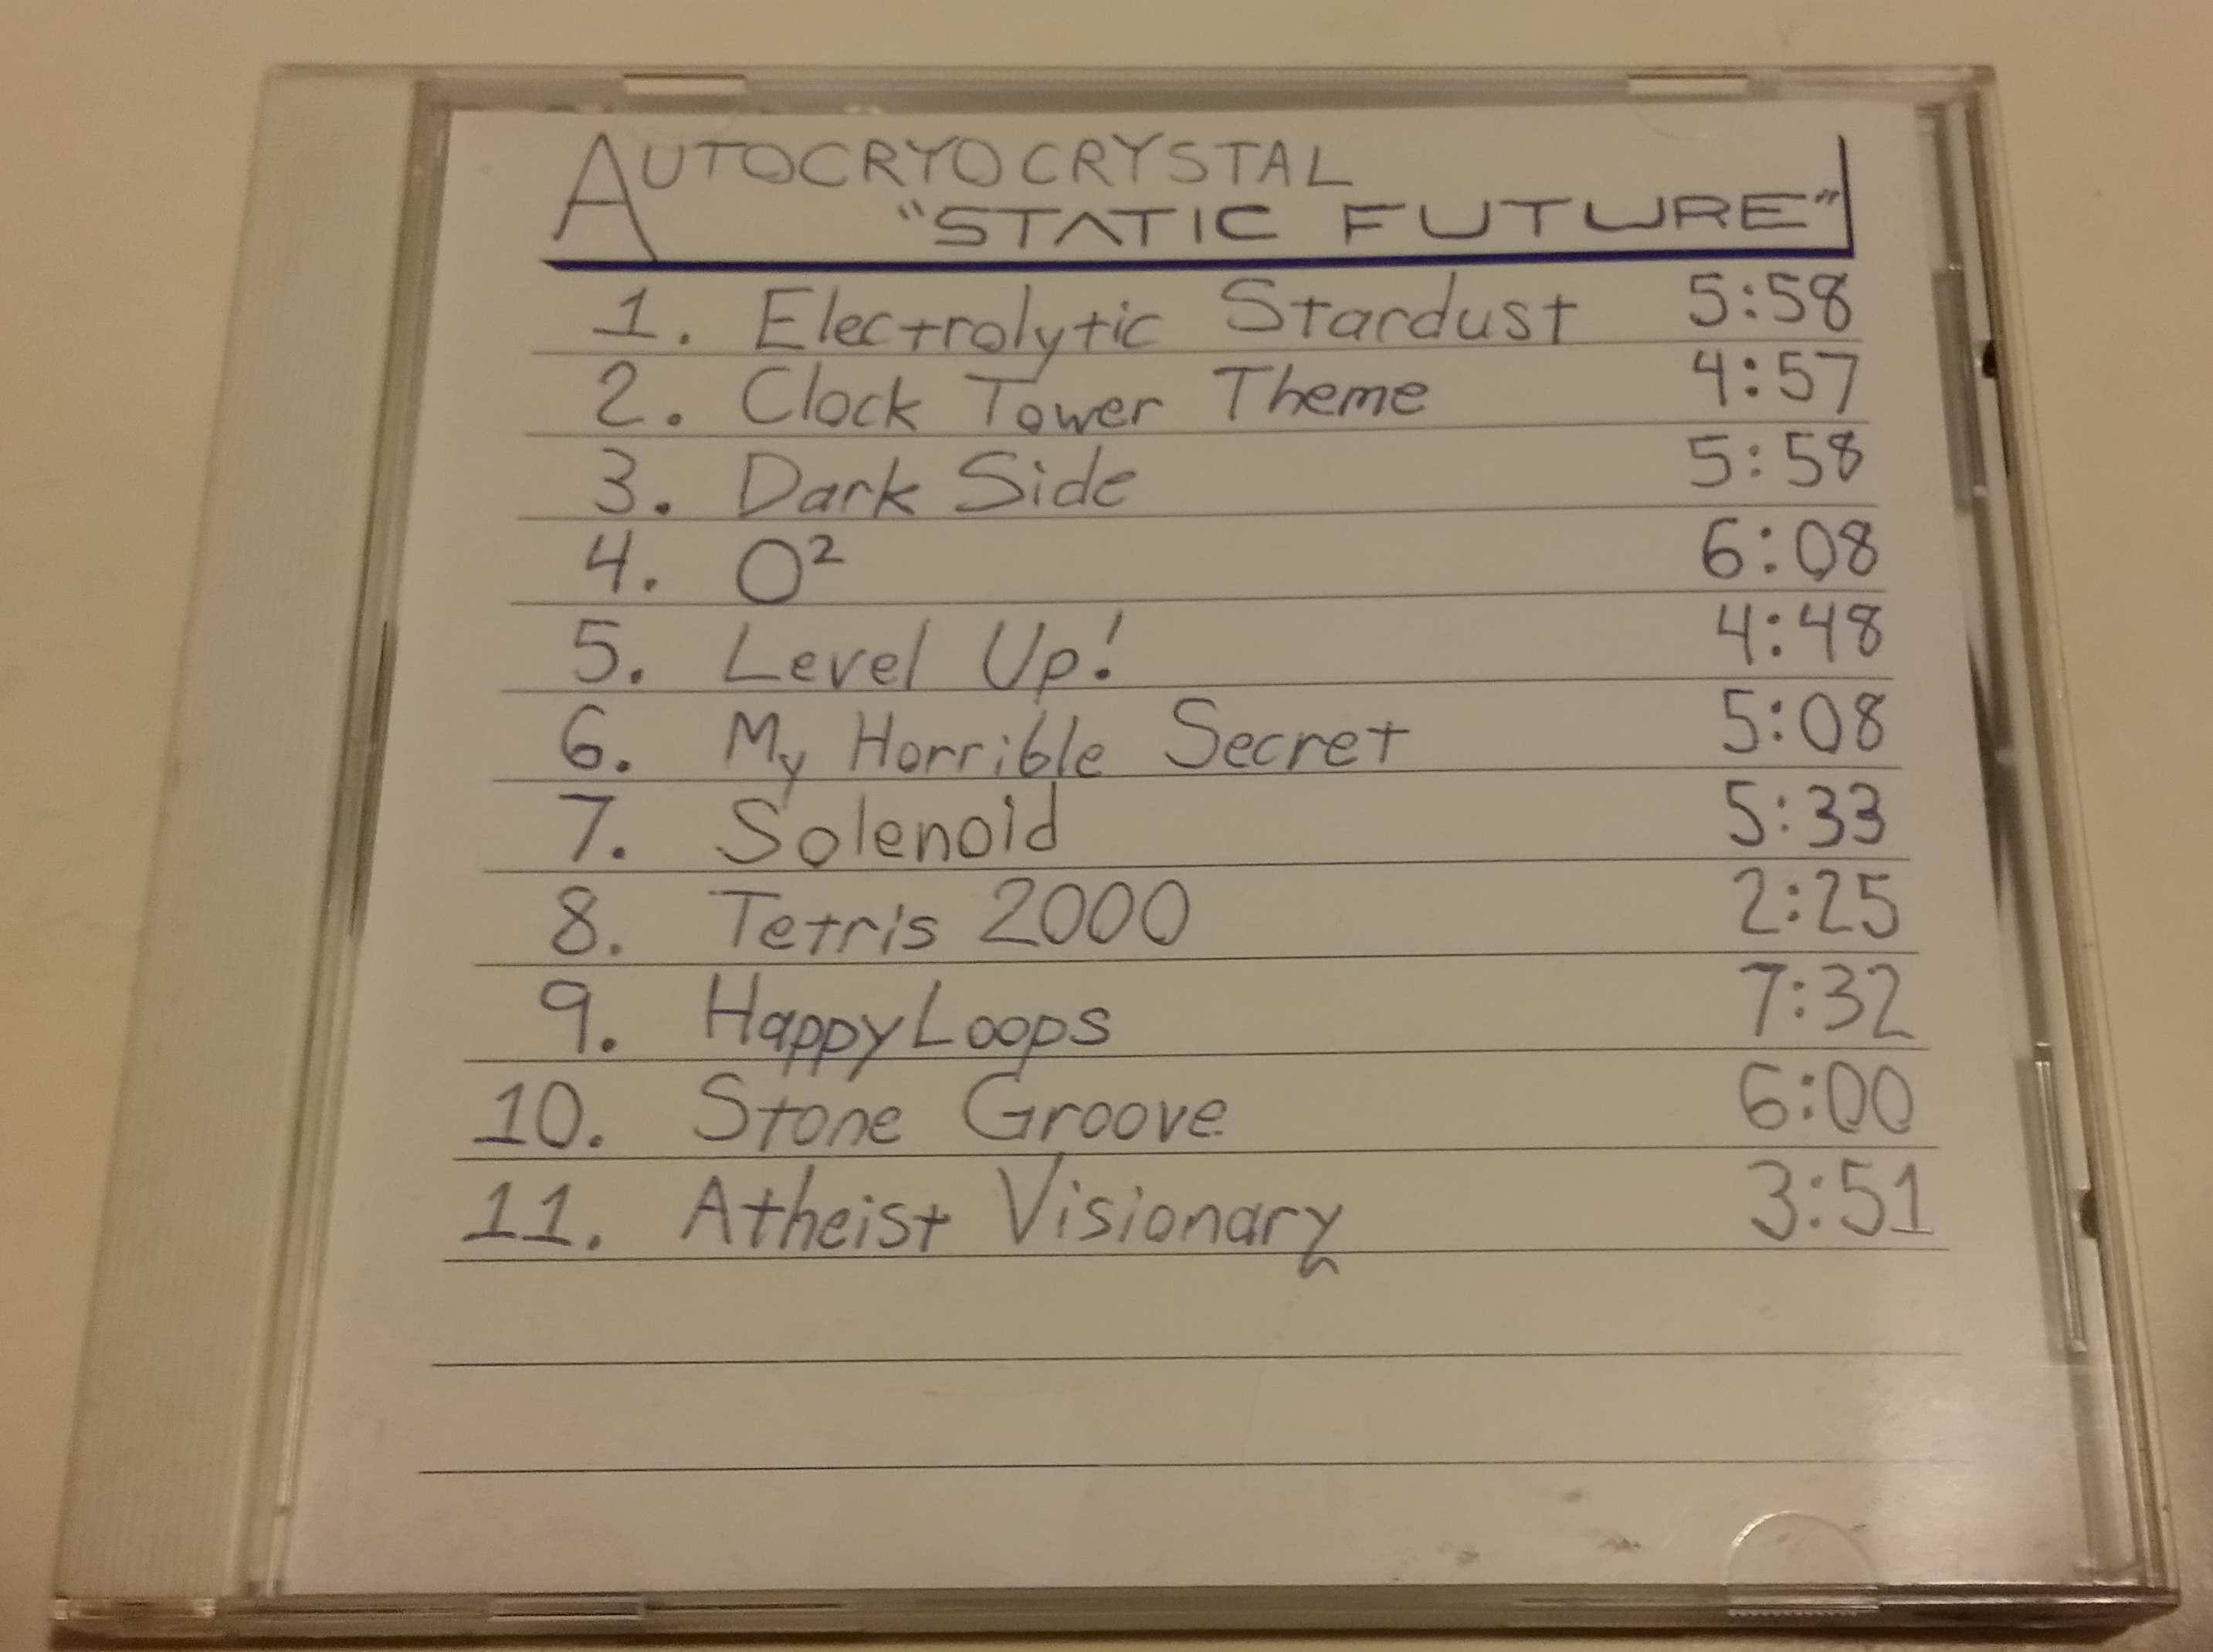 AUTOCRYOCRYSTAL
"STATIC FUTURE"
1. Electrolytic Stardust 5:58
2. Clock Tower Theme 4:57
3. Dark Side 5:58
4. O² 6:08
5. Level Up! 4:48
6. My Horrible Secret 5:08
7. Solenoid 5:33
8. Tetris 2000 2:25
9. HappyLoops 7:32
10. Stone Groove 6:00
11. Atheist Visionary 3:51